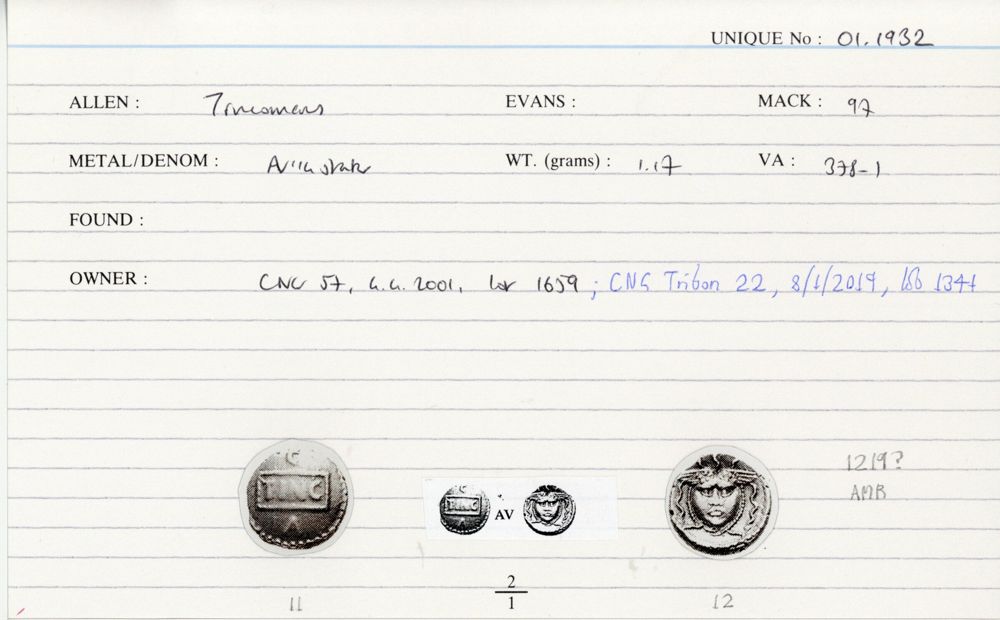 UNIQUE No : 01.1932
ALLEN : Tincomarus EVANS : MACK : 97
METAL/DENOM : WT. (grams) : 1.17 VA : 378-1
FOUND :
OWNER : CNG 57, 4.4.2001, lot 1659 ; CNG Triton 22, 8/1/2019, lot 1341
C
TINC
A
TINC
AV
1219?
AMB
11
2
1
12